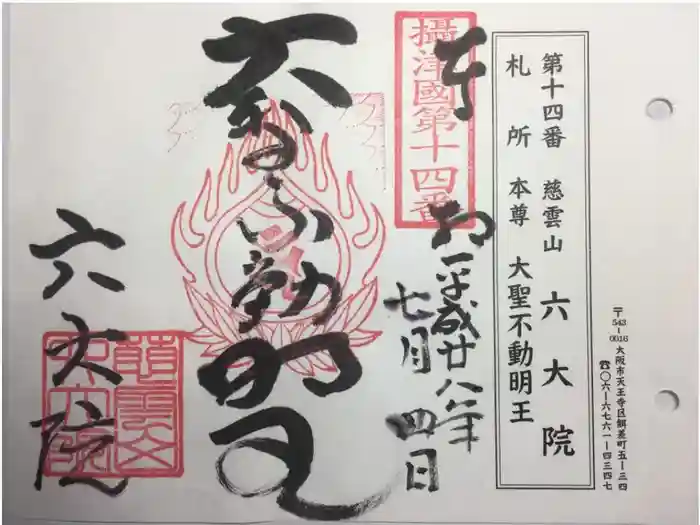 第十四番 慈雲山 六大院
札所 本尊 大聖不動明王
〒543-0016 大阪市天王寺区餌差町五-三四
☎〇六-六七六一-四三四七
攝津國第十四番
奉
平成廿八年
七月四日
不動明王
六大院